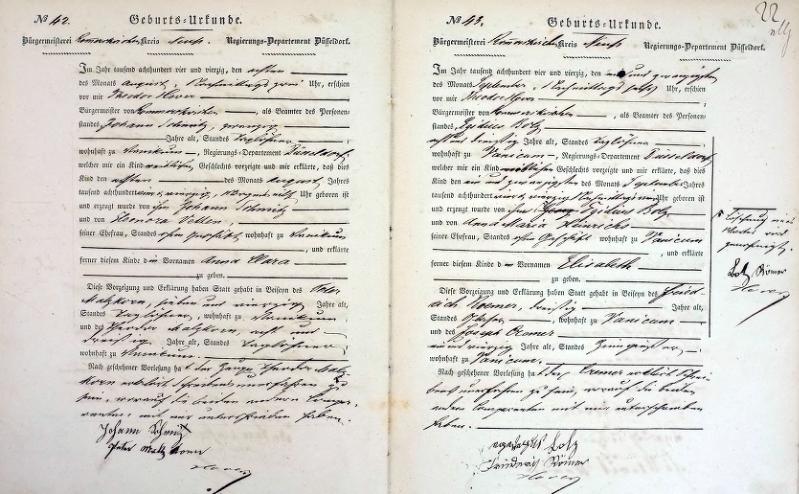 No 42. Geburts-Urkunde.
Bürgermeisterei Rommerskirchen Kreis Neuss Regierungs-Departement Düsseldorf.
Im Jahr tausend achthundert vier und vierzig, den ersten
des Monats August, Nachmittags zwei Uhr, erschien
vor mir Theodor
Bürgermeister von Rommerskirchen, als Beamter des Personen-
standes, Johann Schmitz, zwanzig
Jahre alt, Standes Taglöhner
wohnhaft zu Regierungs-Departement Düsseldorf,
welcher mir ein Kind weiblichen Geschlechts vorzeigte und mir erklärte, daß dies
Kind den ersten des Monats August Jahres
tausend achthundert vier u. vierzig, Morgens Uhr geboren ist
und erzeugt wurde von ihm Johann Schmitz
und von Eleonora
seiner Ehefrau, Standes ohne Geschäft wohnhaft zu
, und erklärte
ferner diesem Kinde den Vornamen Anna Clara
zu geben.
Diese Vorzeigung und Erklärung haben Statt gehabt in Beiseyn des Peter
Malzkorn, sieben und vierzig Jahre alt,
Standes Taglöhner, wohnhaft zu
und des Malzkorn, acht und
dreißig Jahre alt, Standes Taglöhner,
wohnhaft zu
Nach geschehener Vorlesung hat der Zeuge Malz-
korn erklärt Schreibens unerfahren zu
sein, worauf die beiden andern Compa-
renten mit mir unterschrieben haben.
Johann Schmitz
Peter Malzkorn
No 43. Geburts-Urkunde.
22
Bürgermeisterei Rommerskirchen Kreis Neuss Regierungs-Departement Düsseldorf.
Im Jahr tausend achthundert vier und vierzig, den ein und zwanzigsten
des Monats September, Nachmittags sechs Uhr, erschien
vor mir Theodor
Bürgermeister von Rommerskirchen, als Beamter des Personen-
standes, Egidius Bolz
acht und dreißig Jahre alt, Standes Taglöhner
wohnhaft zu Vanicum, Regierungs-Departement Düsseldorf
welcher mir ein Kind weibliches Geschlechts vorzeigte und mir erklärte, daß dies
Kind den ein und zwanzigsten des Monats September Jahres
tausend achthundert vier u. vierzig, Nachmittags Uhr geboren ist
und erzeugt wurde von ihm Egidius Bolz
und von Anna Maria Heinrichs
seiner Ehefrau, Standes ohne Geschäft wohnhaft zu Vanicum
, und erklärte
ferner diesem Kinde den Vornamen Elisabeth
zu geben.
Diese Vorzeigung und Erklärung haben Statt gehabt in Beiseyn des Fried-
rich Roemer, dreißig Jahre alt,
Standes wohnhaft zu Vanicum
und des Joseph Cremer
und vierzig Jahre alt, Standes
wohnhaft zu Vanicum.
Nach geschehener Vorlesung hat der Cremer erklärt Schrei-
bens unerfahren zu sein, worauf die beiden
andern Comparenten mit mir unterschrieben
haben.
Bolz
Friederich Römer
wird
genehmigt.
Bolz Römer